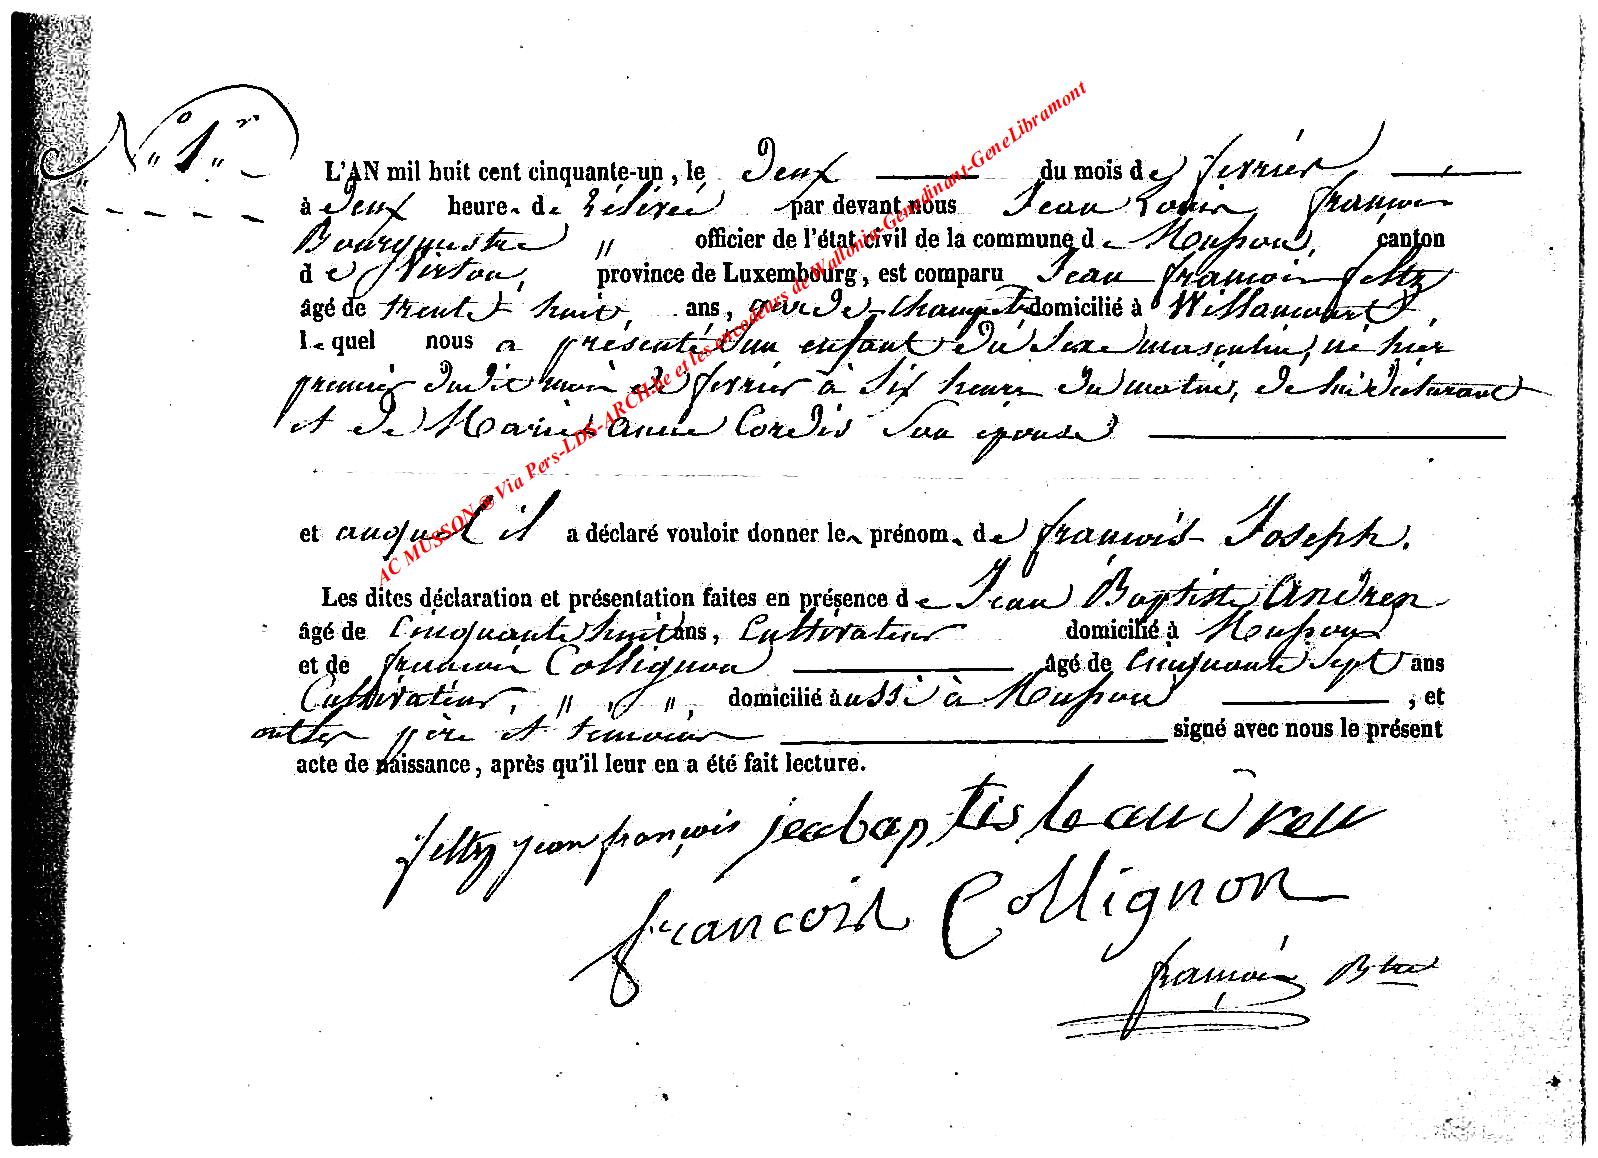 N° 1er
L'AN mil huit cent cinquante-un, le Deux du mois de fevrier
à Deux heure de rélévée par devant nous Jean Louis françois
Bourgmestre " officier de l'état civil de la commune de Musson, canton
de Virton, province de Luxembourg, est comparu Jean françois feltz
âgé de trente huit, ans, garde-champetre domicilié à Willancourt,
lequel nous a présenté un enfant du sexe masculin, né hier
premier dudit mois de fevrier à six heures du matin, de lui déclarant
et de Marie anne Cordis son épouse
et auquel il a déclaré vouloir donner le prénom de françois Joseph.
Les dites déclaration et présentation faites en présence de Jean Baptiste Andren
âgé de Cinquante huit ans, Cultivateur domicilié à Musson
et de françois Collignon âgé de cinquante sept ans
Cultivateur, " " ", domicilié aussi à Musson, et
ont les père et témoins signé avec nous le présent
acte de naissance, après qu'il leur en a été fait lecture.
feltz jean françois jeabaptiste andreu
francois Collignon
françois Btre
AC MUSSON @ Via Pers-LDS-ARCH.be et les encodeurs de Wallonia-Genedinant-GeneLibramont